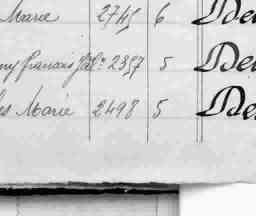 Marie 2745 6 De
ny francois Jh. 2357 5 De
es Marie 2498 5 De